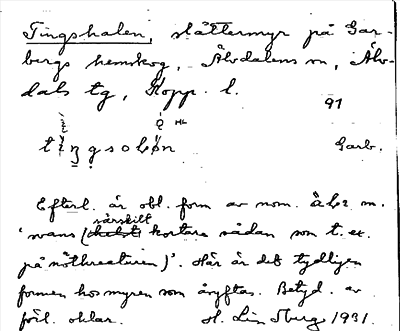 Tingshalen, slåttermyr på Gar-
bergs hemskog, Älvdalens sn, Älv-
dals tg, Kopp. l.
91
Garb.
Efterl. är obl. form av nom. 
särskilt
'svans ( kortare sådan som t. ex.
på nötkreaturen)'. Här är det tydligen
formen hos myren som åsyftas. Betyd. av
förl. oklar. 1931.